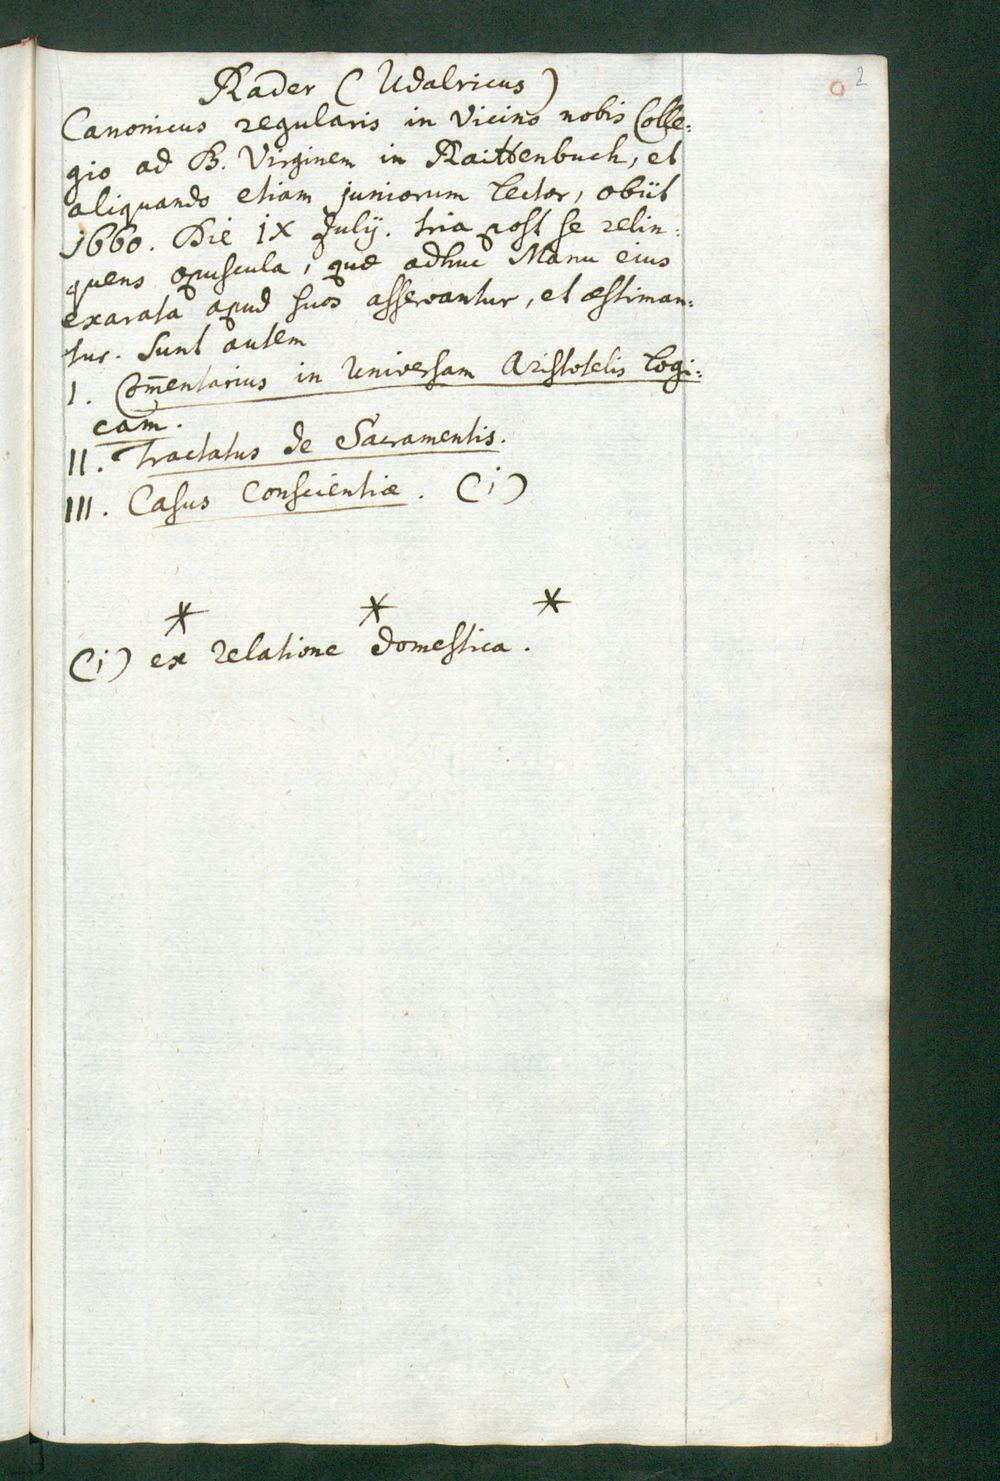 2
Rader (Udalricus)
Canonicus regularis in Vicino nobis Colle:
gio ad B. Virginem in Raittenbuch, et
aliquando etiam juniorum Lector, obiit
1660. Die IX July. tria post se relin:
quens opuscula, quæ adhuc Manu eius
exarata apud suos asservantur, et æstiman:
tur. Sunt autem
I. Com̄entarius in Universam Aristotelis Logi:
cam.
II. Tractatus de Sacramentis.
III. Casus Conscientiæ. (i)
* * *
(i) ex relatione domestica.